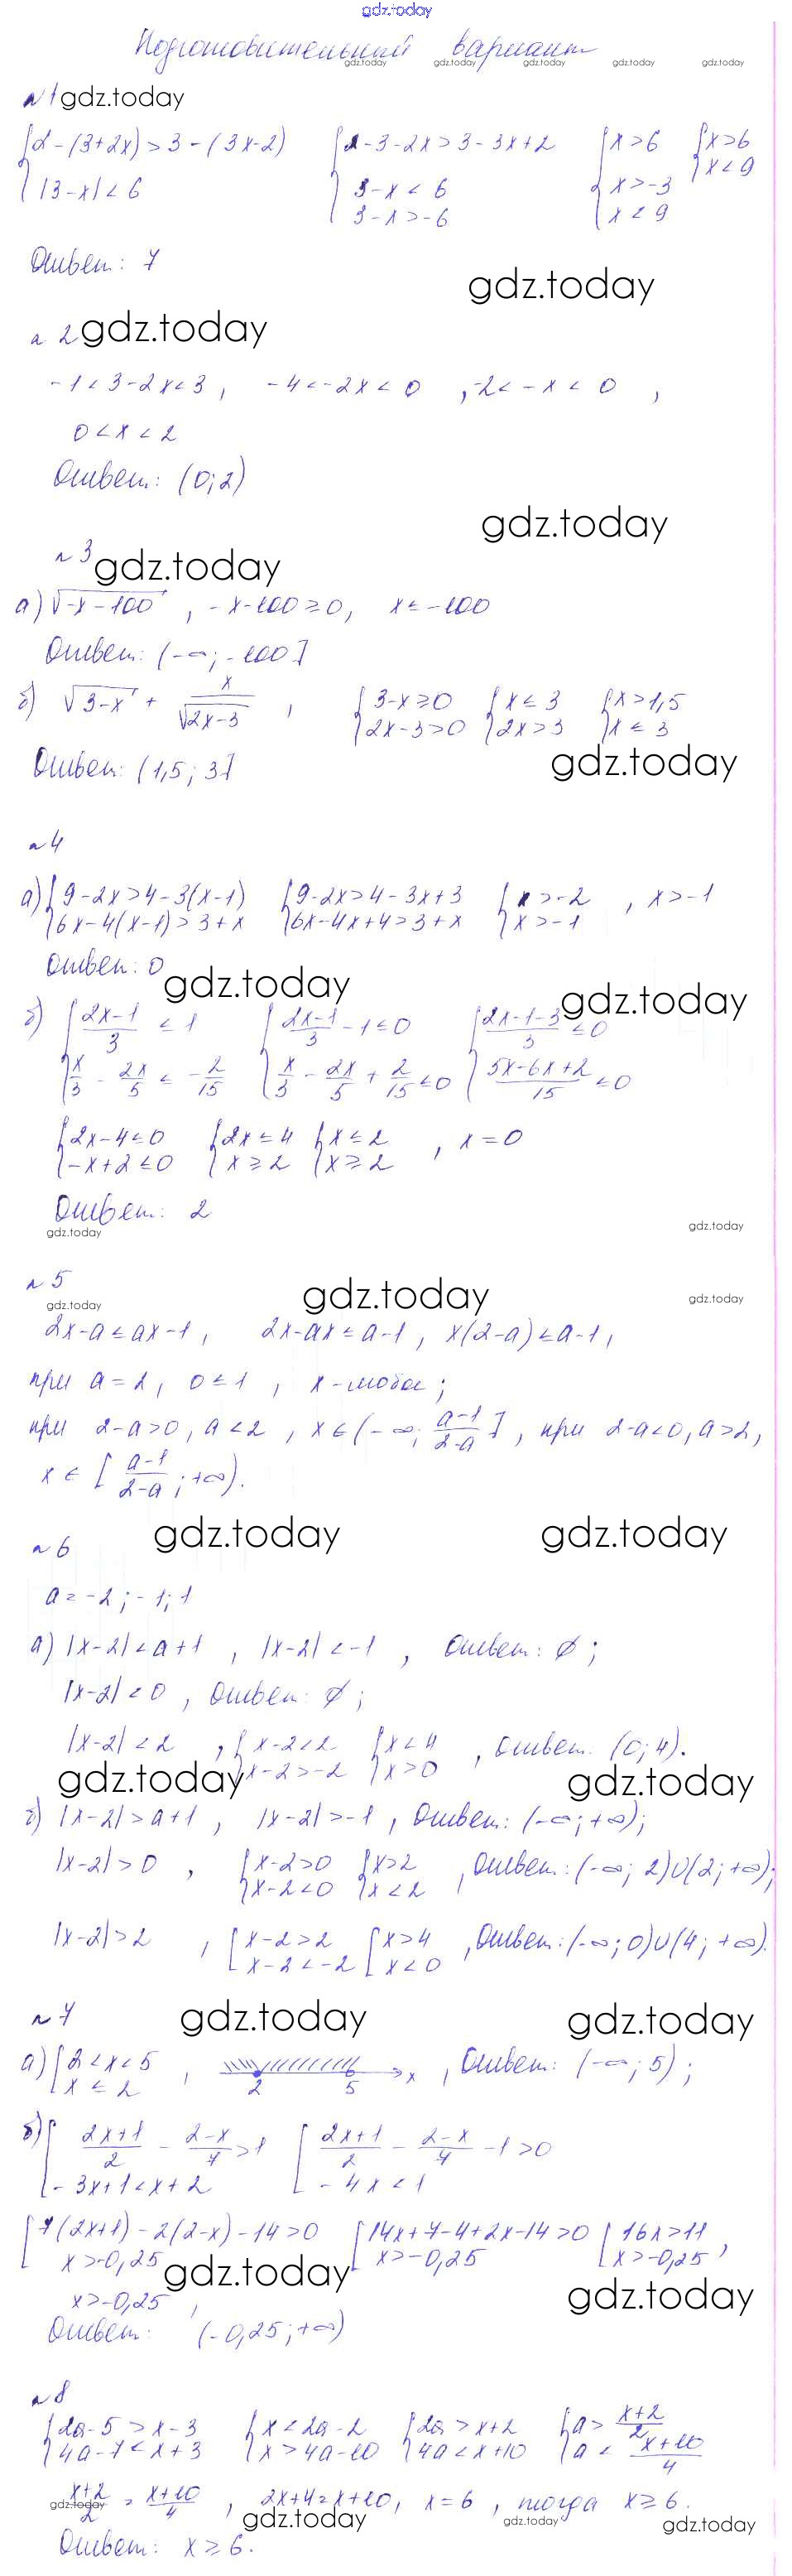 gdz.today
Подготовительный вариант
gdz.today gdz.today gdz.today gdz.today gdz.today
№1 gdz.today
{2-(3+2x)>3-(3x-2) {2-3-2x>3-3x+2 {x>6 {x>6
|3-x|<6 3-x<6 x>-3 x<9
3-x>-6 x<9
Ответ: 7
gdz.today
№2 gdz.today
-1<3-2x<3, -4<-2x<0, -2<-x<0,
0<x<2
Ответ: (0;2)
gdz.today
№3 gdz.today
а) √(-x-100), -x-100≥0, x≤-100
Ответ: (-∞;-100]
б) √(3-x) + x/√(2x-3), {3-x≥0 {x≤3 {x>1,5
2x-3>0 2x>3 x≤3
Ответ: (1,5; 3]
gdz.today
№4
а) {9-2x>4-3(x-1) {9-2x>4-3x+3 {x>-2, x>-1
6x-4(x-1)>3+x 6x-4x+4>3+x x>-1
Ответ: 0 gdz.today
gdz.today
б) {(2x-1)/3 ≤ 1 {(2x-1)/3 - 1≤0 {(2x-1-3)/3 ≤0
x/3 - 2x/5 ≤ -2/15 x/3 - 2x/5 + 2/15 ≤0 (5x-6x+2)/15 ≤0
{2x-4≤0 {2x≤4 {x≤2, x=0
-x+2≤0 x≥2 x≥2
Ответ: 2
gdz.today gdz.today
№5
gdz.today gdz.today gdz.today
2x-a≤ax-1, 2x-ax≤a-1, x(2-a)≤a-1,
при a=2, 0≤1, x-любое;
при 2-a>0, a<2, x∈(-∞; (a-1)/(2-a)], при 2-a<0, a>2,
x∈[(a-1)/(2-a); +∞).
№6 gdz.today gdz.today
a=-2;-1;1
а) |x-2|<a+1, |x-2|<-1, Ответ: ∅;
|x-2|<0, Ответ: ∅;
|x-2|<2, {x-2<2 {x<4, Ответ: (0;4).
x-2>-2 x>0
gdz.today gdz.today
б) |x-2|>a+1, |x-2|>-1, Ответ: (-∞;+∞);
|x-2|>0, {x-2>0 {x>2, Ответ: (-∞; 2)∪(2; +∞);
x-2<0 x<2
|x-2|>2, [x-2>2 [x>4, Ответ: (-∞;0)∪(4; +∞).
x-2<-2 x<0
№7 gdz.today gdz.today
а) [2<x<5, 2 5 x, Ответ: (-∞; 5);
x≤2
б) [(2x+1)/2 - (2-x)/7 >1 [(2x+1)/2 - (2-x)/7 -1>0
-3x+1<x+2 -4x<1
[7(2x+1)-2(2-x)-14>0 [14x+7-4+2x-14>0 [16x>11,
x>-0,25 x>-0,25 x>-0,25
gdz.today gdz.today
x>-0,25,
Ответ: (-0,25;+∞)
№8
{2a-5>x-3 {x<2a-2 {2a>x+2 {a>(x+2)/2
4a-7<x+3 x>4a-10 4a<x+10 a<(x+10)/4
(x+2)/2 ≥ (x+10)/4, 2x+4≥x+10, x=6, тогда x≥6.
gdz.today gdz.today gdz.today gdz.today
Ответ: x≥6.